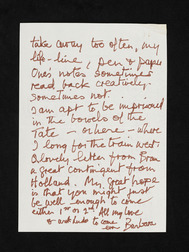 take away too often, my
life-line, pen & paper
One's notes sometimes
read back creatively -
sometimes not.
I am apt to be
in the bowels of the
Tate - or here - where
I long for the train west.
A lovely letter from
a great contingent from
Holland. My great hope
is that you might just
be well enough to come
either 1st or 2nd. All my love
& and to come
Barbara